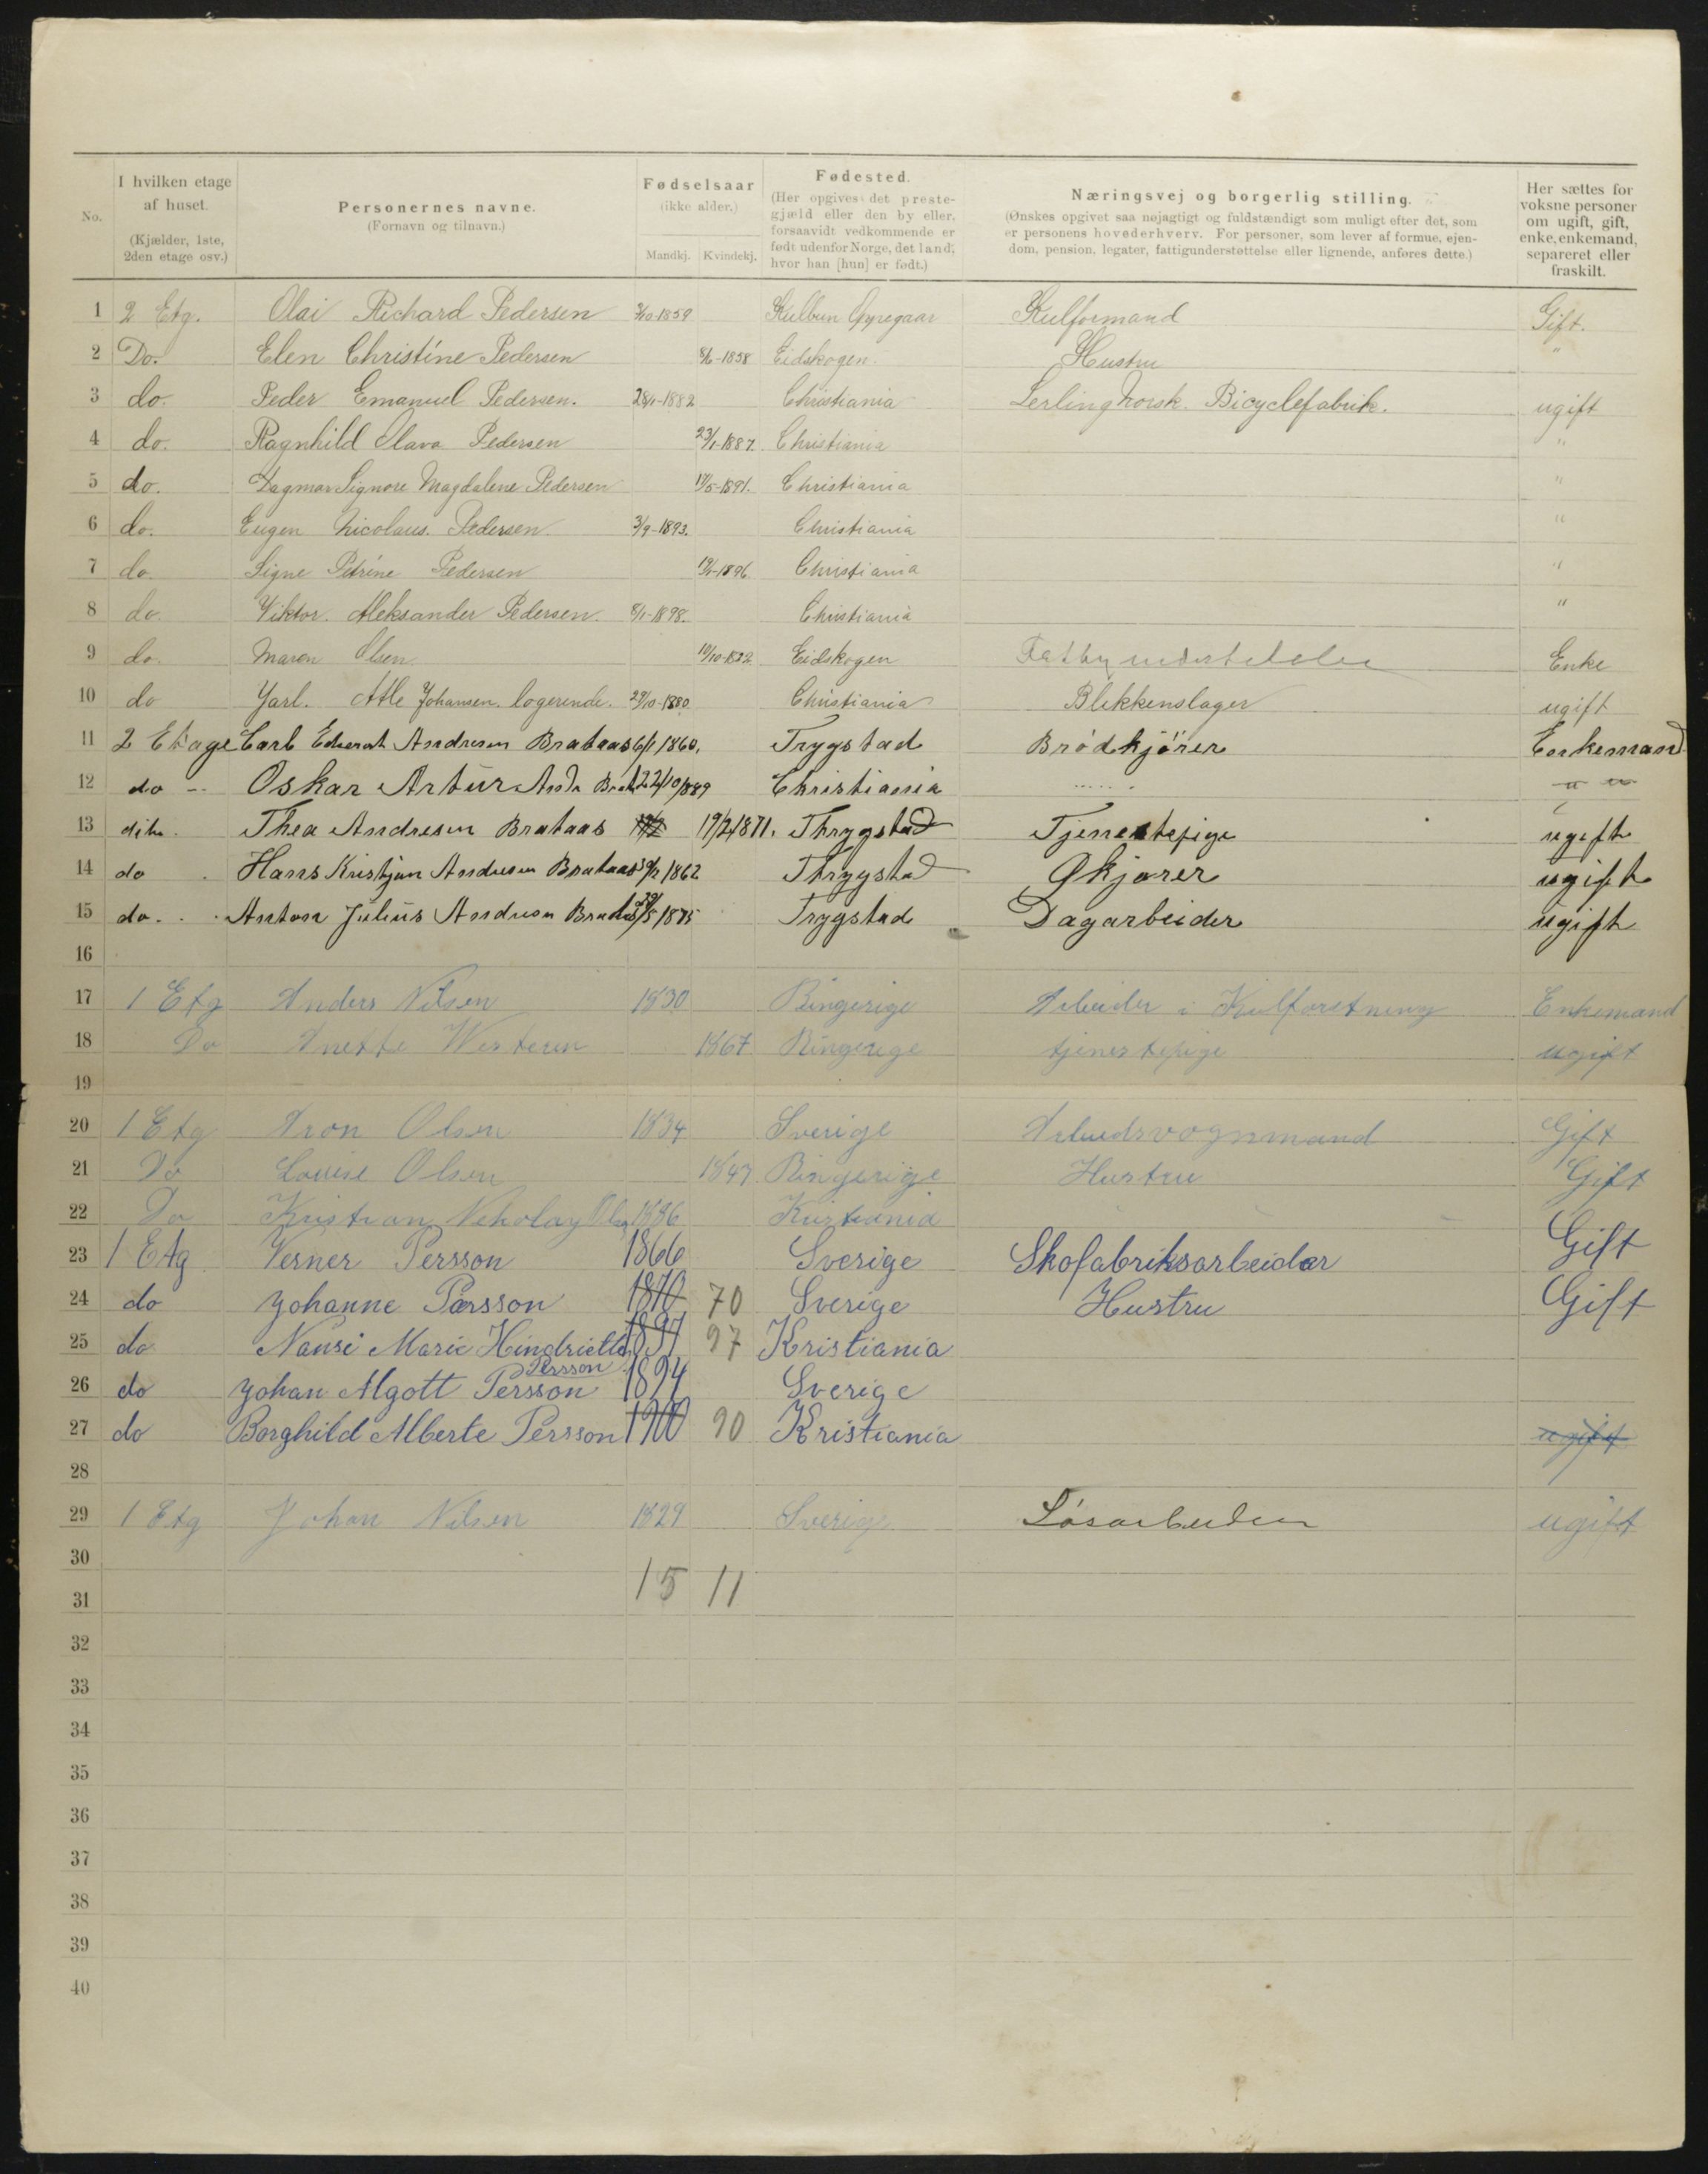 No.
I hvilken etage af huset. (Kjælder, 1ste, 2den etage osv.)
Personernes navne. (Fornavn og tilnavn.)
Fødselsaar (ikke alder.) Mandkj. Kvindekj.
Fødested. (Her opgives det prestegjæld eller den by eller, forsaavidt vedkommende er født udenfor Norge, det land, hvor han [hun] er født.)
Næringsvej og borgerlig stilling. (Ønskes opgivet saa nøjagtigt og fuldstændigt som muligt efter det, som er personens hovederhverv. For personer, som lever af formue, ejendom, pension, legater, fattigunderstøttelse eller lignende, anføres dette.)
Her sættes for voksne personer om ugift, gift, enke, enkemand, separeret eller fraskilt.
1 2 Etg. Olai Richard Pedersen 2/10-1859 Kulformand Gift.
2 Do. Elen Christine Pedersen 8/6-1858 Eidskogen. Hustru "
3 do. Peder Emanuel Pedersen. 28/1-1882 Christiania Lerling Norsk. Bicyclefabrik. ugift
4 do. Ragnhild Olava Pedersen 23/1-1887. Christiania "
5 do. Dagmar Signore Magdalene Pedersen 17/5-1891. Christiania "
6 do. Eugen Nicolaus. Pedersen. 3/9-1893. Christiania "
7 do. Signe Petrine Pedersen 1896 Christiania "
8 do. Viktor. Aleksander Pedersen. 8/1-1898. Christiania "
9 do. Maren Olsen Eidskogen Enke
10 do Jarl. Atle Johansen. logerende. 29/10-1880 Christiania Blikkenslager ugift
11 2 Etage Carl Andresen Brataas 6/1 1860. Trygstad Brödkjörer Enkemand
12 do - Oskar Artur Andr 22/10/889 Christiania " "
13 dito. Thea Andresen Brataas 19/2 19/2/871. Thrygstad Tjenestepige ugift
14 do . Hans Kristjan Andresen Brataas 1862 Thrygstad Økjører ugift
15 do. . . Anton Julius Andresen 1875 Trygstad Dagarbeider ugift
16
17 1 Etg Anders Nilsen 1830 Ringerige Arbeider i Kulforetning Enkemand
18 Do Anette Westeren 1867 Ringerige tjenestepige ugift
19
20 1 Etg Aron Olsen 1834 Sverige Arbeidsvognmand Gift
21 Do Louise Olsen 1847 Ringerige Hustru Gift
22 Do Kristian Nikolay Olsen 1886 Kristiania
23 1 Etg Verner Persson 1866 Sverige Skofabriksarbeider Gift
24 do Johanne Persson 1870 70 Sverige Hustru Gift
25 do Nansi Marie Hindriette 1897 97 Kristiania
Persson
26 do Johan Algott Persson 1894 Sverige
27 do Borghild Alberte Persson 1900 90 Kristiania ugift
28
29 1 Etg Johan Nilsen 1829 Sverige Løsarbeider ugift
30
31 15 11
32
33
34
35
36
37
38
39
40